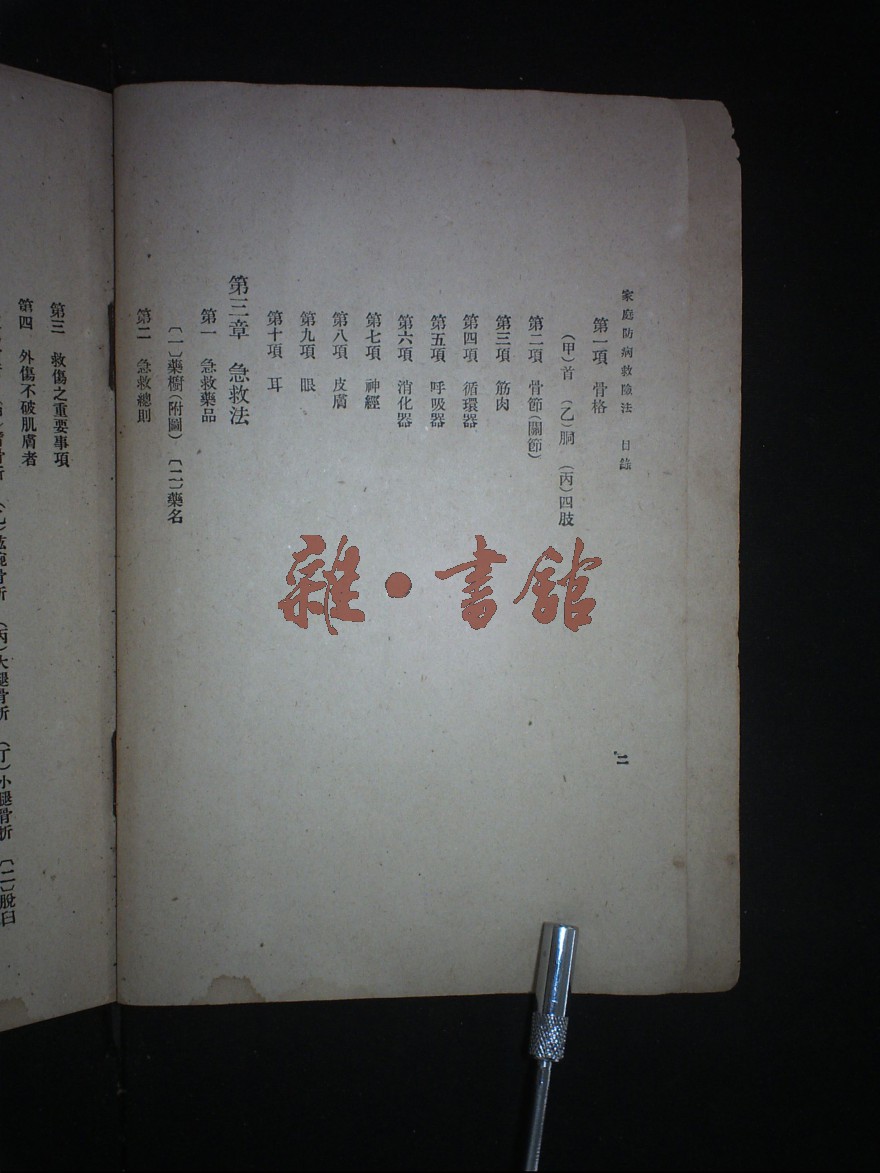 家庭防病救險法 目錄
二
第一項 骨格
(甲)首 (乙)胴 (丙)四肢
第二項 骨節(關節)
第三項 筋肉
第四項 循環器
第五項 呼吸器
第六項 消化器
第七項 神經
第八項 皮膚
第九項 眼
第十項 耳
第三章 急救法
第一 急救藥品
〔一〕藥櫥(附圖) 〔二〕藥名
第二 急救總則
第三 救傷之重要事項
第四 外傷不破肌膚者
(丙)大腿骨折 (丁)小腿骨折 〔二〕脫臼
雜·書館